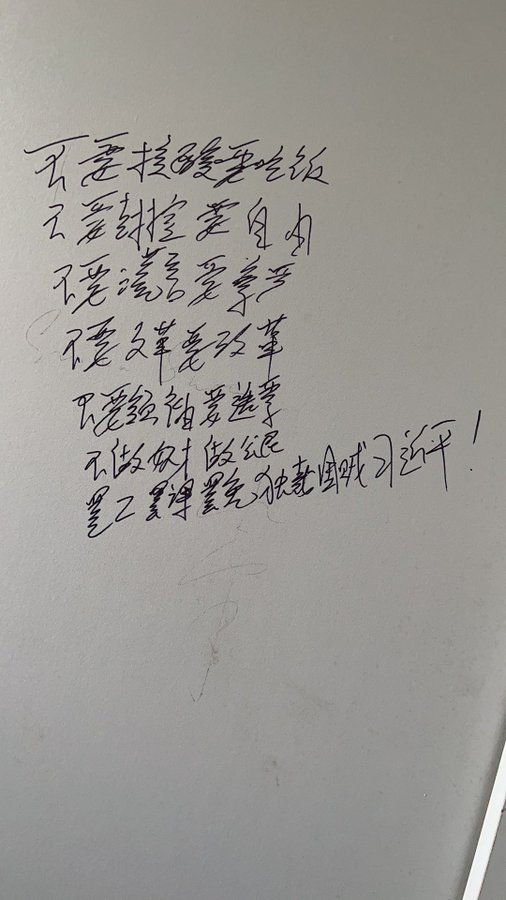 不要核酸要吃饭
不要封控要自由
不要谎言要尊严
不要文革要改革
不要领袖要选票
不做奴才做公民
罢工罢课罢免独裁国贼习近平！